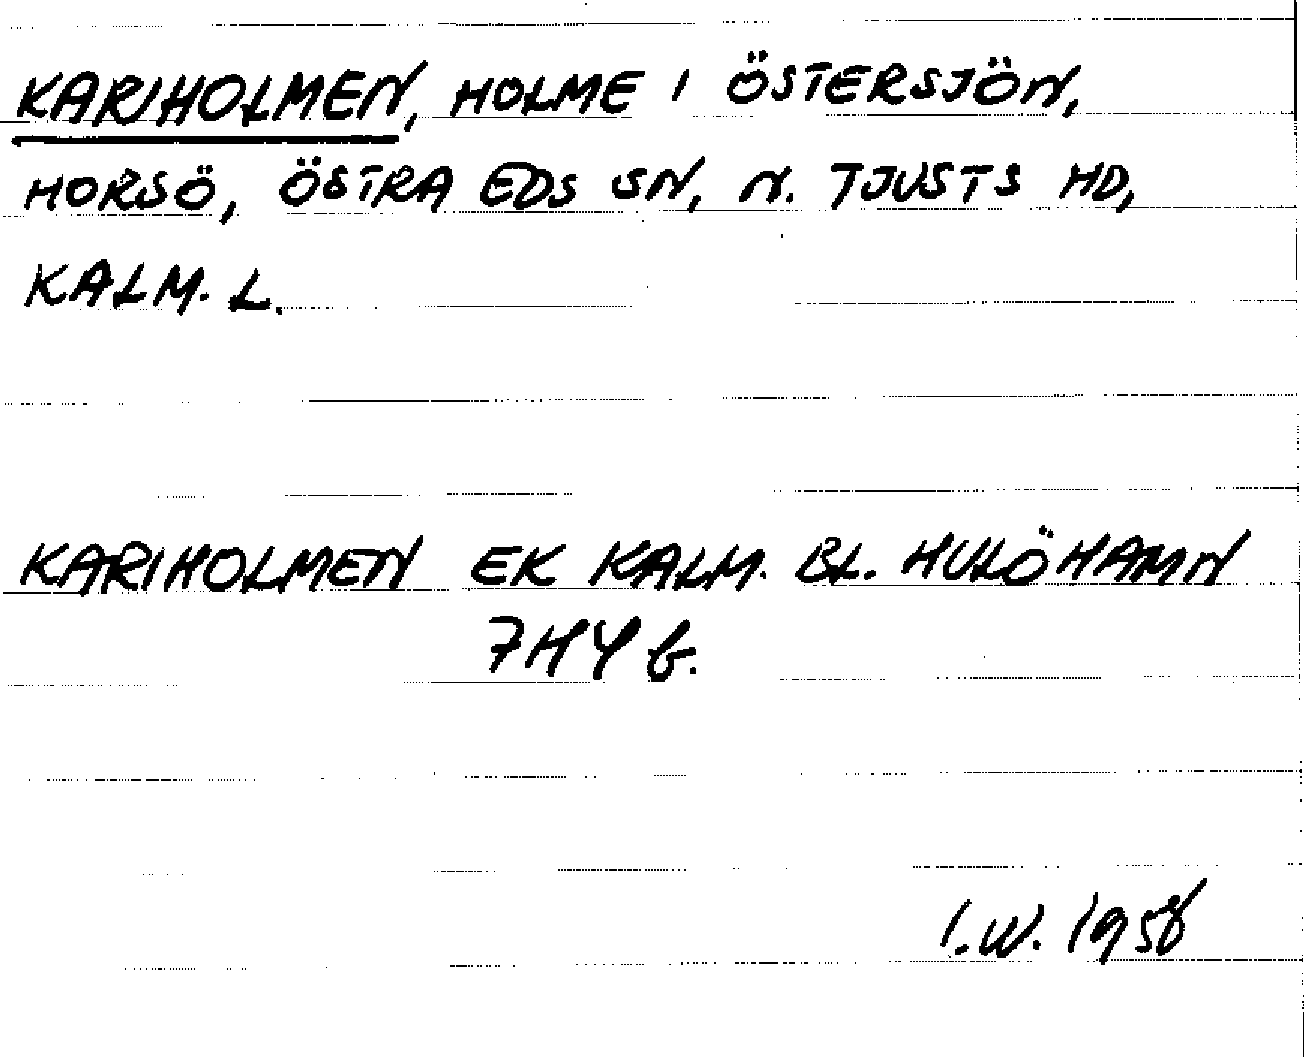 KARIHOLMEN, HOLME I ÖSTERSJÖN,
HORSÖ, ÖSTRA EDS SN, N. TJUSTS HD,
KALM. L.
KARIHOLMEN EK KALM. BL. HULÖHAMN
7H4 b.
I.W. 1958